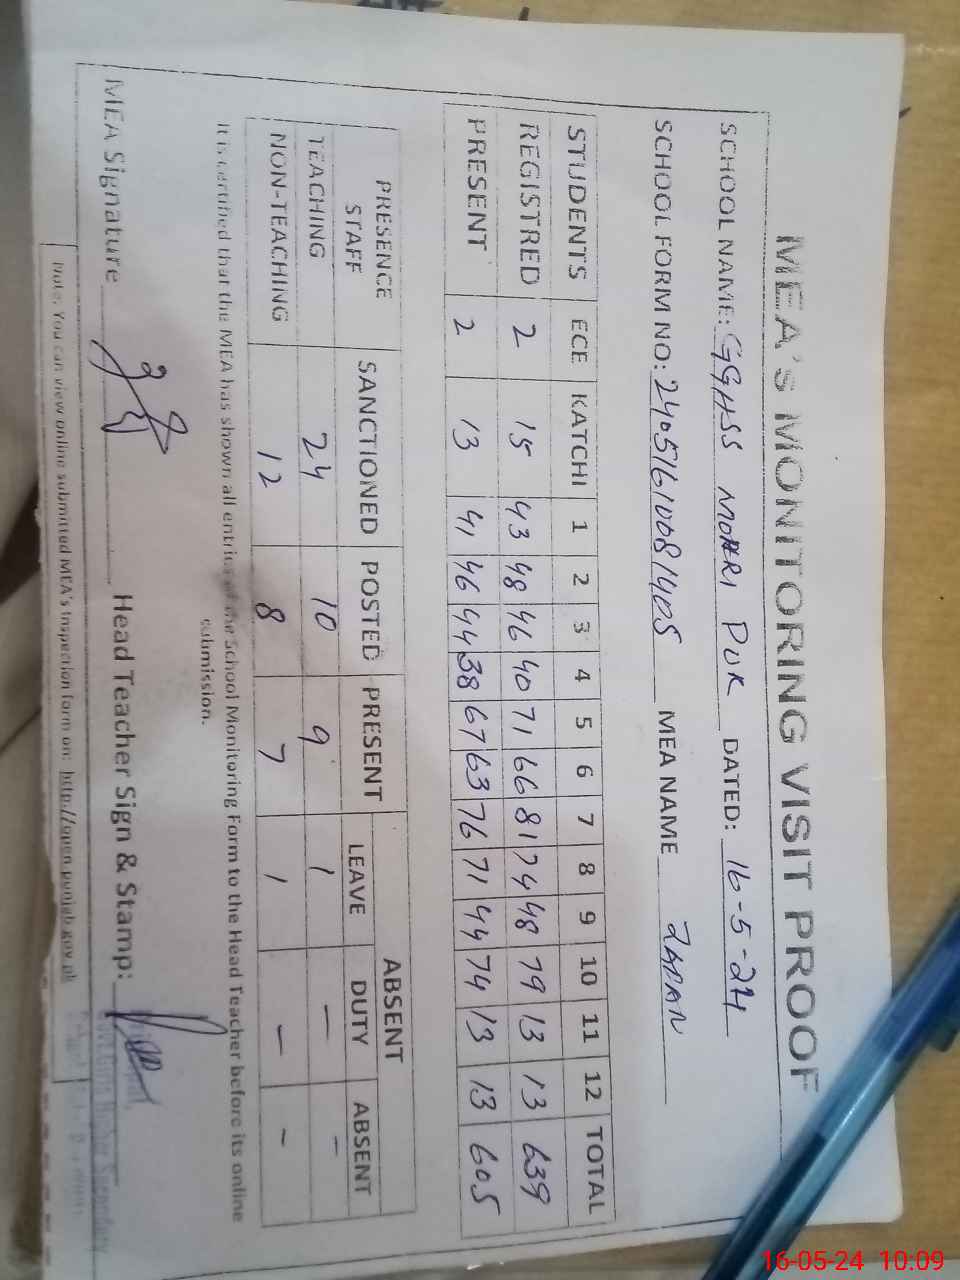 MEA'S MONITORING VISIT PROOF
SCHOOL NAME: GGHSS MOHRI PUR DATED: 16-5-24
SCHOOL FORM NO: 24051610081405 MEA NAME
STUDENTS ECE KATCHI 1 2 3 4 5 6 7 8 9 10 11 12 TOTAL
REGISTRED 2 15 43 48 46 40 71 66 81 74 48 79 13 13 639
PRESENT 2 13 41 46 44 38 67 63 76 71 44 74 13 13 605
PRESENCE STAFF SANCTIONED POSTED PRESENT ABSENT
LEAVE DUTY ABSENT
TEACHING 24 10 9 1 - -
NON-TEACHING 12 8 7 1 - -
It is certified that the MEA has shown all entries of the School Monitoring Form to the Head Teacher before its online
submission.
MEA Signature Head Teacher Sign & Stamp:
Note: You can view online submitted MEA's Inspection form on: http://open.punjab.gov.pk
16-05-24 10:09